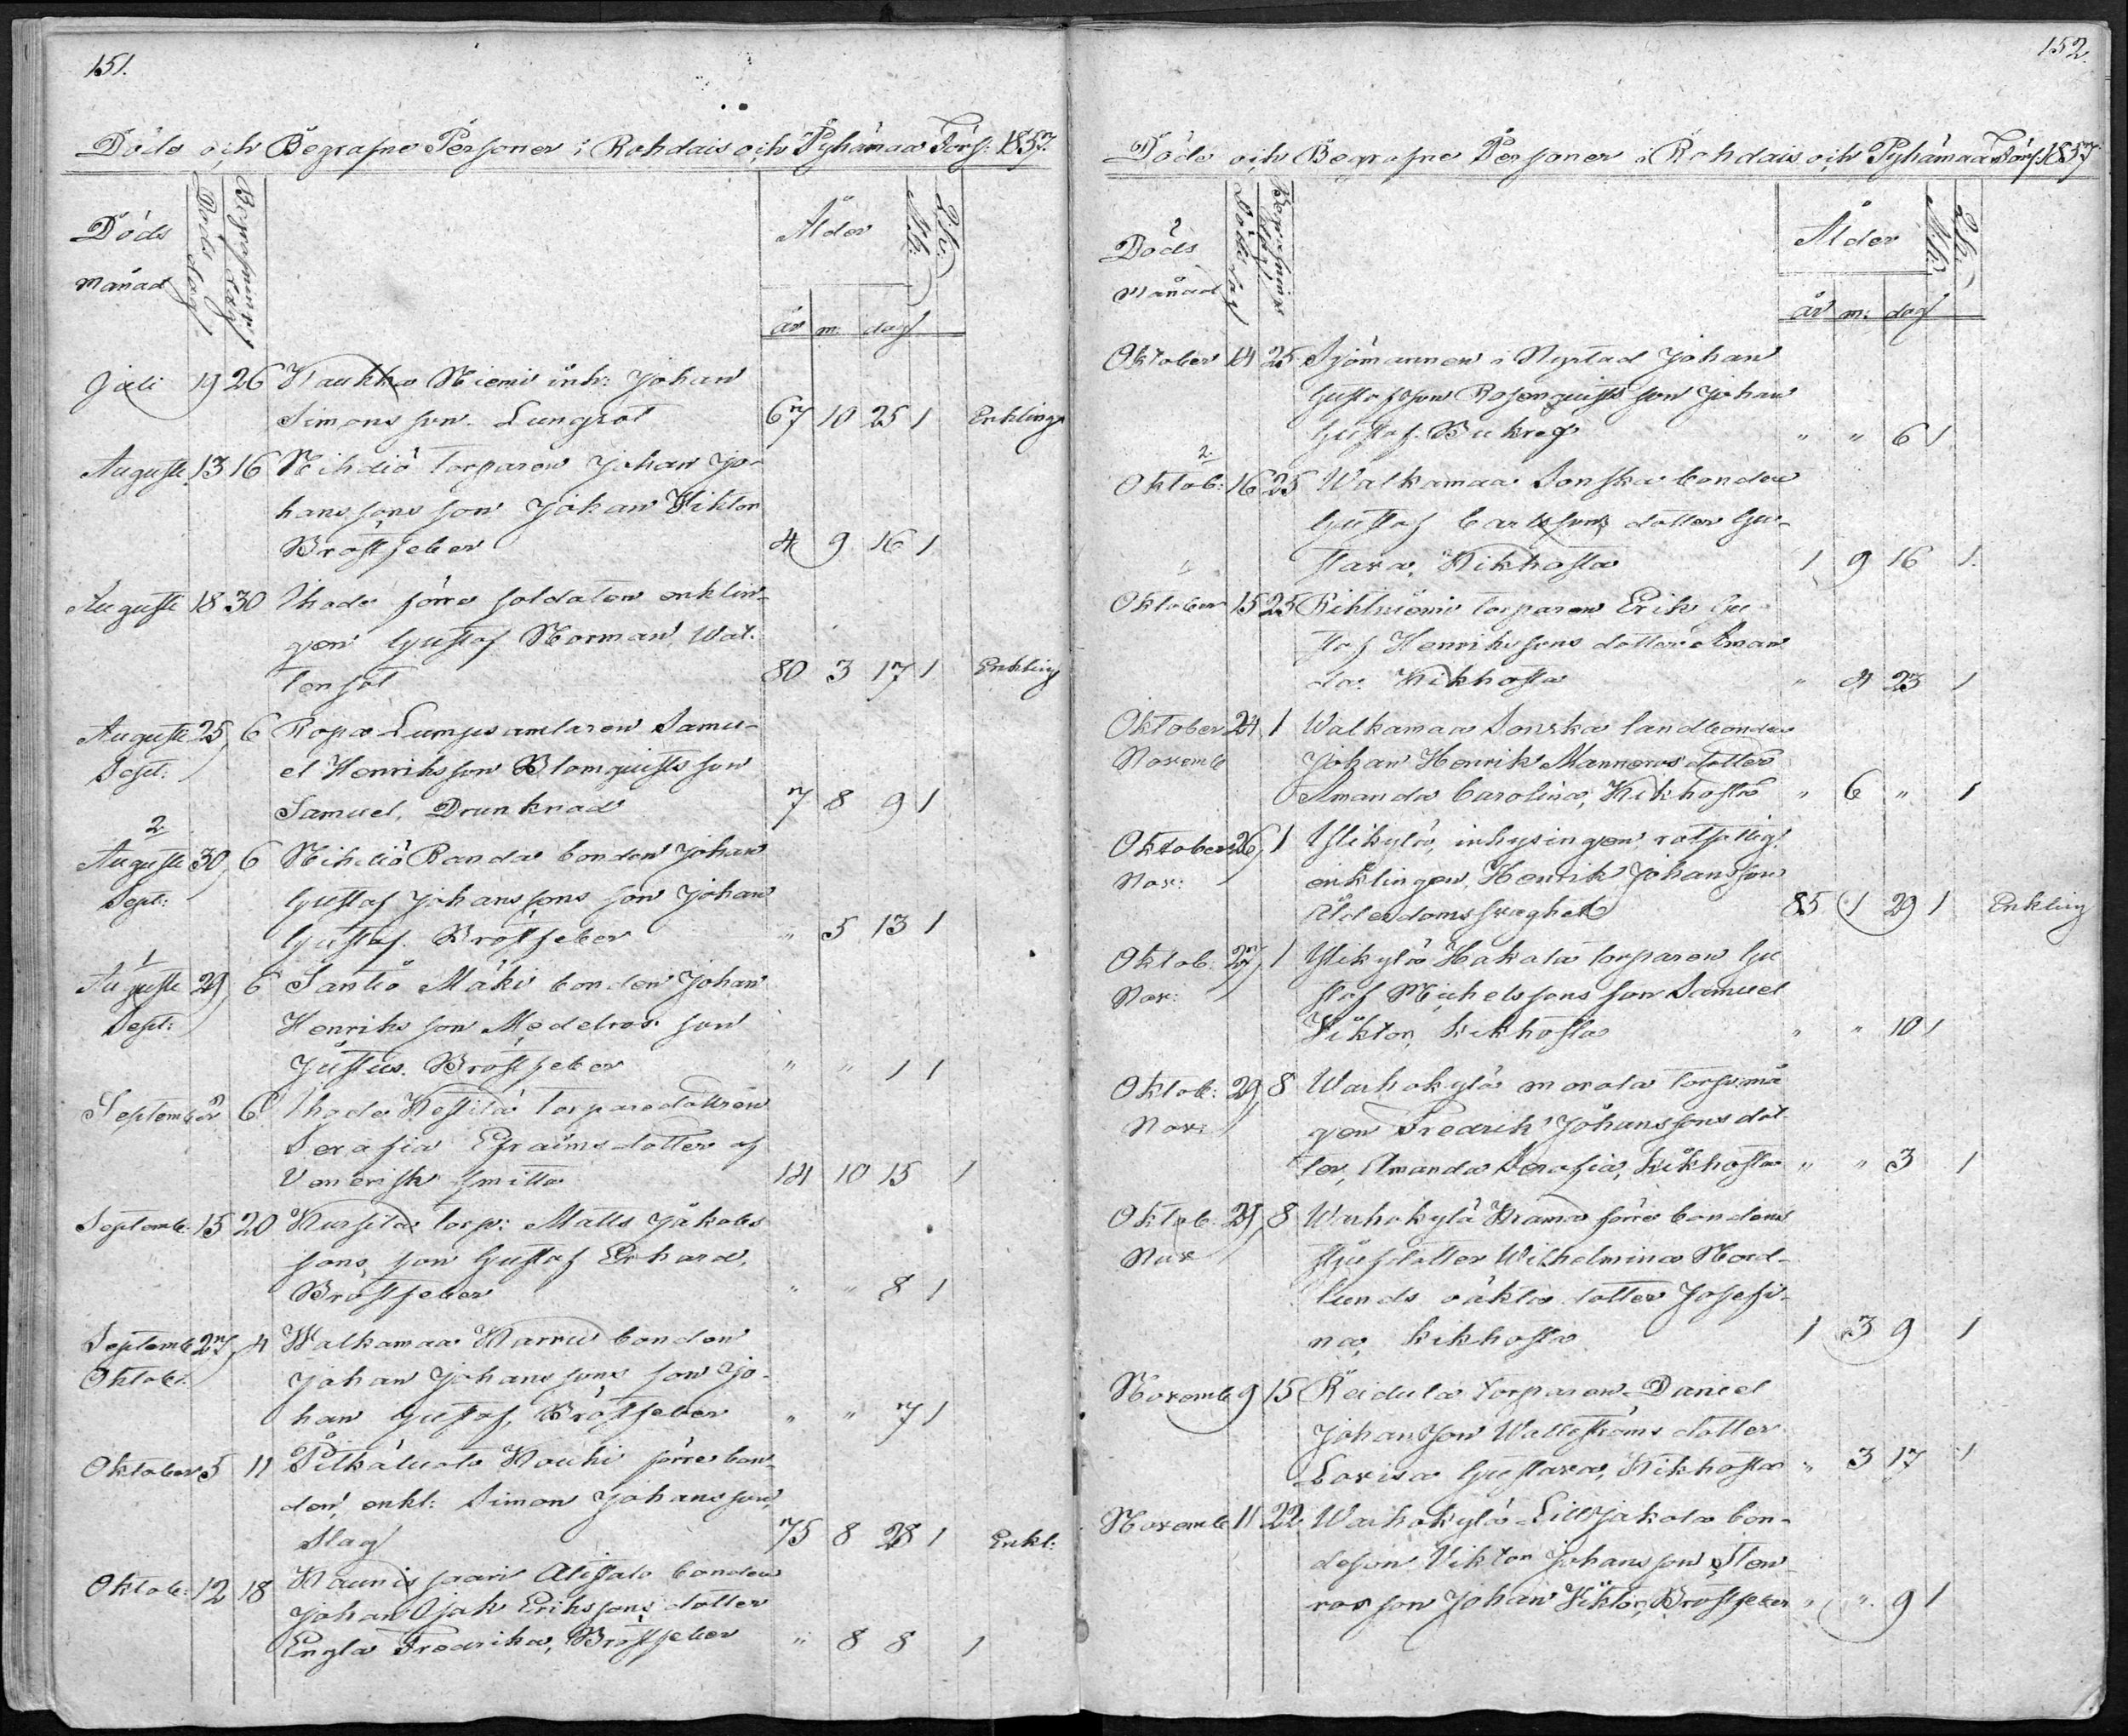 151.
Döde och Begrafne Personer i Rohdais och Pyhämaa Förs: 1857.
Döds månad
Döds dag
Begrafnings dag
Ålder
M.k:
Q.k:
år m: dag
Juli 19 26 Kaukko Niemi inh: Johan
Simonsson. Lungsot 67 10 25 1 Enkling
Augusti 13 16 Nihdiö torparen Johan Jo-
hanssons son Johan Viktor
Bröstfeber 4 9 16 1
Augusti 18 30 Ihode förre soldaten enklin-
gen Gustaf Norman, Wat-
tensot 80 3 17 1 Enkling
Augusti 25 6 Ropa Lumpsamlaren Samu-
Sept: el Henriksson Blomquists son
Samuel, Drunknad 7 8 9 1
2.
Augusti 30 6 Nihdiö Randa bonden Johan
Sept: Gustaf Johanssons son Johan
Gustaf. Bröstfeber " 5 13 1
1
Augusti 29 6 Santio Mäki bonden Johan
Sept: Henriksson son
Justus. Bröstfeber " " 1 1
September 6 Ihode torparedottren
Serafia Efraims dotter af
Venerisk smitta 14 10 15 1
Septemb. 15 20 torp: Matts Jakobs
sons son Gustaf Erhard,
Bröstfeber " " 8 1
Septemb 27 4 Walkamaa Warru bonden
Oktob. Johan Johanssons son Jo-
han Gustaf, Bröstfeber " " 7 1
Oktober 5 11 Pitkäluoto Kouhi förre bon-
den, enkl: Simon Johansson,
Slag 75 8 28 1 Enkl:
Oktob: 12 18 Kaunissaari Alissalo bonden
Johan Isak Erikssons dotter
Engla Fredrika, Bröstfeber " 8 8 1
152.
Döde och Begrafne Personer i Rohdais och Pyhämaa Förs. 1857
Döds Månad
Döds dag
Begrafnings dag
Ålder
M.k:
Q.k:
år m: dag
Oktober 14 25 Sjömannen i Nystad Johan
Gustafsson Rosenquists son Johan
Gustaf. Bukref " " 6 1
2.
Oktob: 16 25 Walkamaa Sonska bonden
Gustaf Carlssons dotter Gu-
stava, Kikhosta 1 9 16 1.
1
Oktober 15 25 Rihtniemi torparen Erik Gu
staf Henrikssons dotter Aman
da. Kikhosta " 4 23 1
Oktober 24 1 Walkamaa Sonska landbonden
Novemb Johan Henrik Manneros dotter
Amanda Carolina, Kikhosta " 6 " 1
Oktober 26 1 Ylikylä, inhysingen rotfattig
Nov: enklingen, Henrik Johansson
Ålderdomssvaghet 85 1 29 1 Enkling
Oktob. 27 1 Ylikylä Hakala torparen Gu
Nov: staf Michelssons son Samuel
Viktor, kikhosta " " 10 1
Oktob: 29 8 Warhokylä torpsmå
Nov: gen Fredrik Johanssons dot
ter, Amanda Serafia, kikhosta " " 3 1
Oktob. 29 8 Warhokylä förre bondens
Nov styfdotter Wilhelmina Nord-
lunds oäkta dotter Josefi-
na, kikhosta 1 3 9 1
Novemb 9 15 Reidula torparen Daniel
Johansson Wallströms dotter
Lovisa Gustava, Kikhosta " 3 17 1
Novemb 11 22 Warhokylä Lilljakola bon-
deson Viktor Johansson Sten
ros son Johan Viktor, Bröstfeber " " 9 1